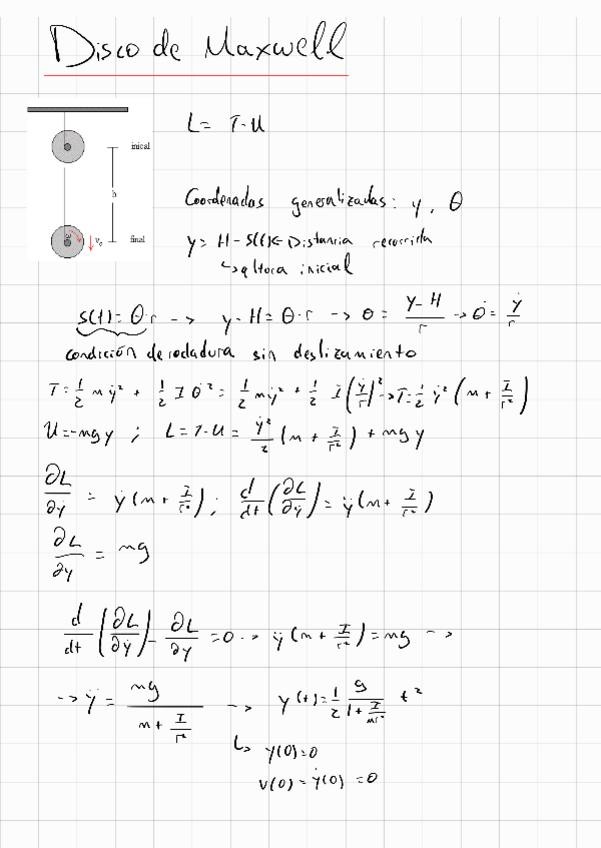 Disco de Maxwell
L = T - U
inical
h
v₀
final
Coordenadas generalizadas: y, θ
y = H - s(t) ← Distancia recorrida
↳ altura inicial
s(t) = θ·r -> y - H = θ·r -> θ = (y - H)/r -> θ̇ = ẏ/r
condición de rodadura sin deslizamiento
T = 1/2 m ẏ² + 1/2 I θ̇² = 1/2 m ẏ² + 1/2 I (ẏ/r)² -> T = 1/2 ẏ² (m + I/r²)
U = -mgy ; L = T - U = ẏ²/2 (m + I/r²) + mgy
∂L/∂ẏ = ẏ (m + I/r²) ; d/dt (∂L/∂ẏ) = ÿ (m + I/r²)
∂L/∂y = mg
d/dt (∂L/∂ẏ) - ∂L/∂y = 0 -> ÿ (m + I/r²) = mg ->
-> ÿ = mg/(m + I/r²) -> y(t) = 1/2 g/(1 + I/mr²) t²
↳ y(0) = 0
v(0) = ẏ(0) = 0